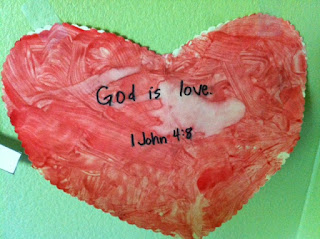 God is love.
1 John 4:8